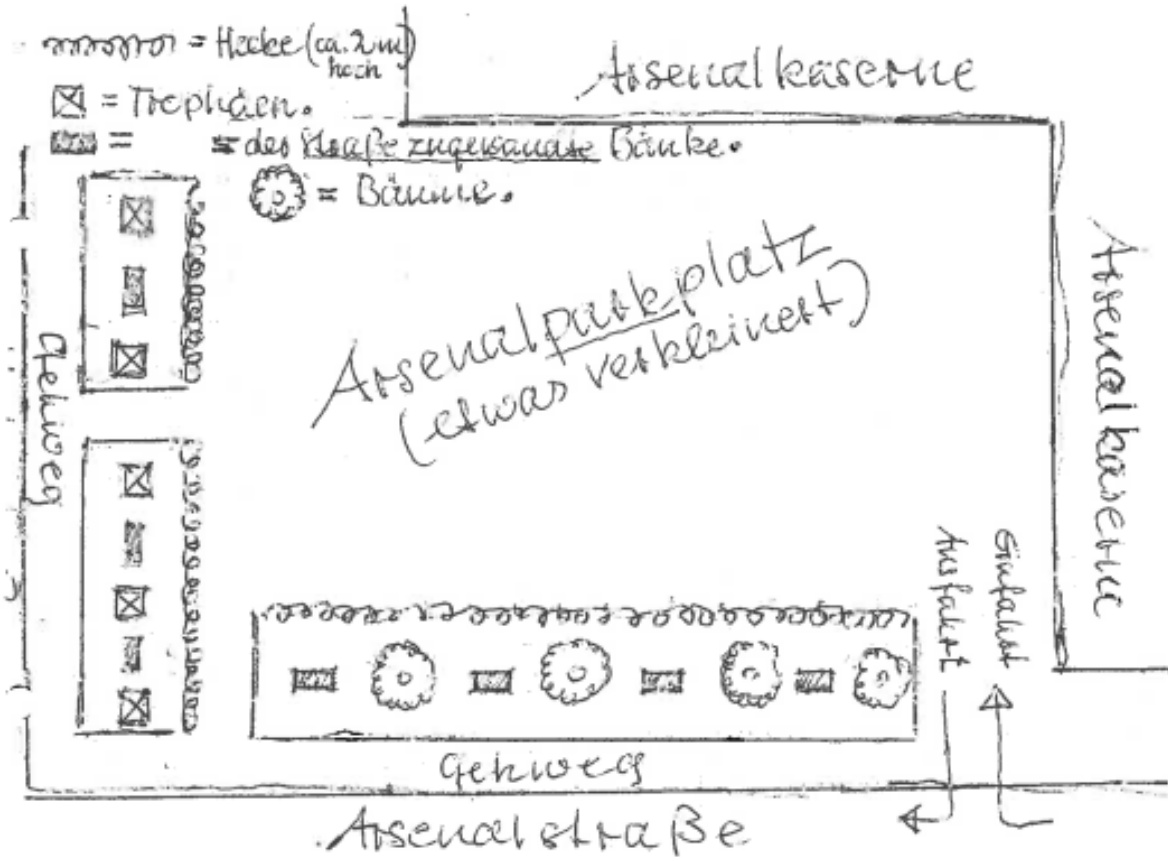 = Hecke (ca. 2 m
hoch)
= Trophäen.
= = der Straße zugewandte Bänke.
= Bäume.
Arsenalkaserne
Arsenalkaserne
Arsenalparkplatz
(etwas verkleinert)
Gehweg
Ausfahrt
Einfahrt
Gehweg
Arsenalstraße